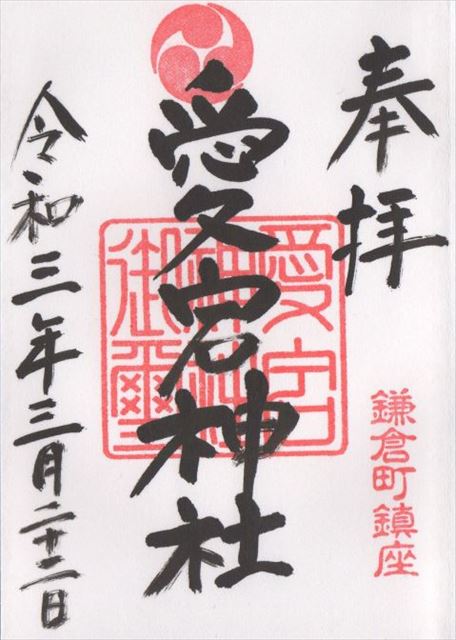 奉拝
鎌倉町鎮座
愛宕神社
愛宕
御璽
令和三年三月二十二日